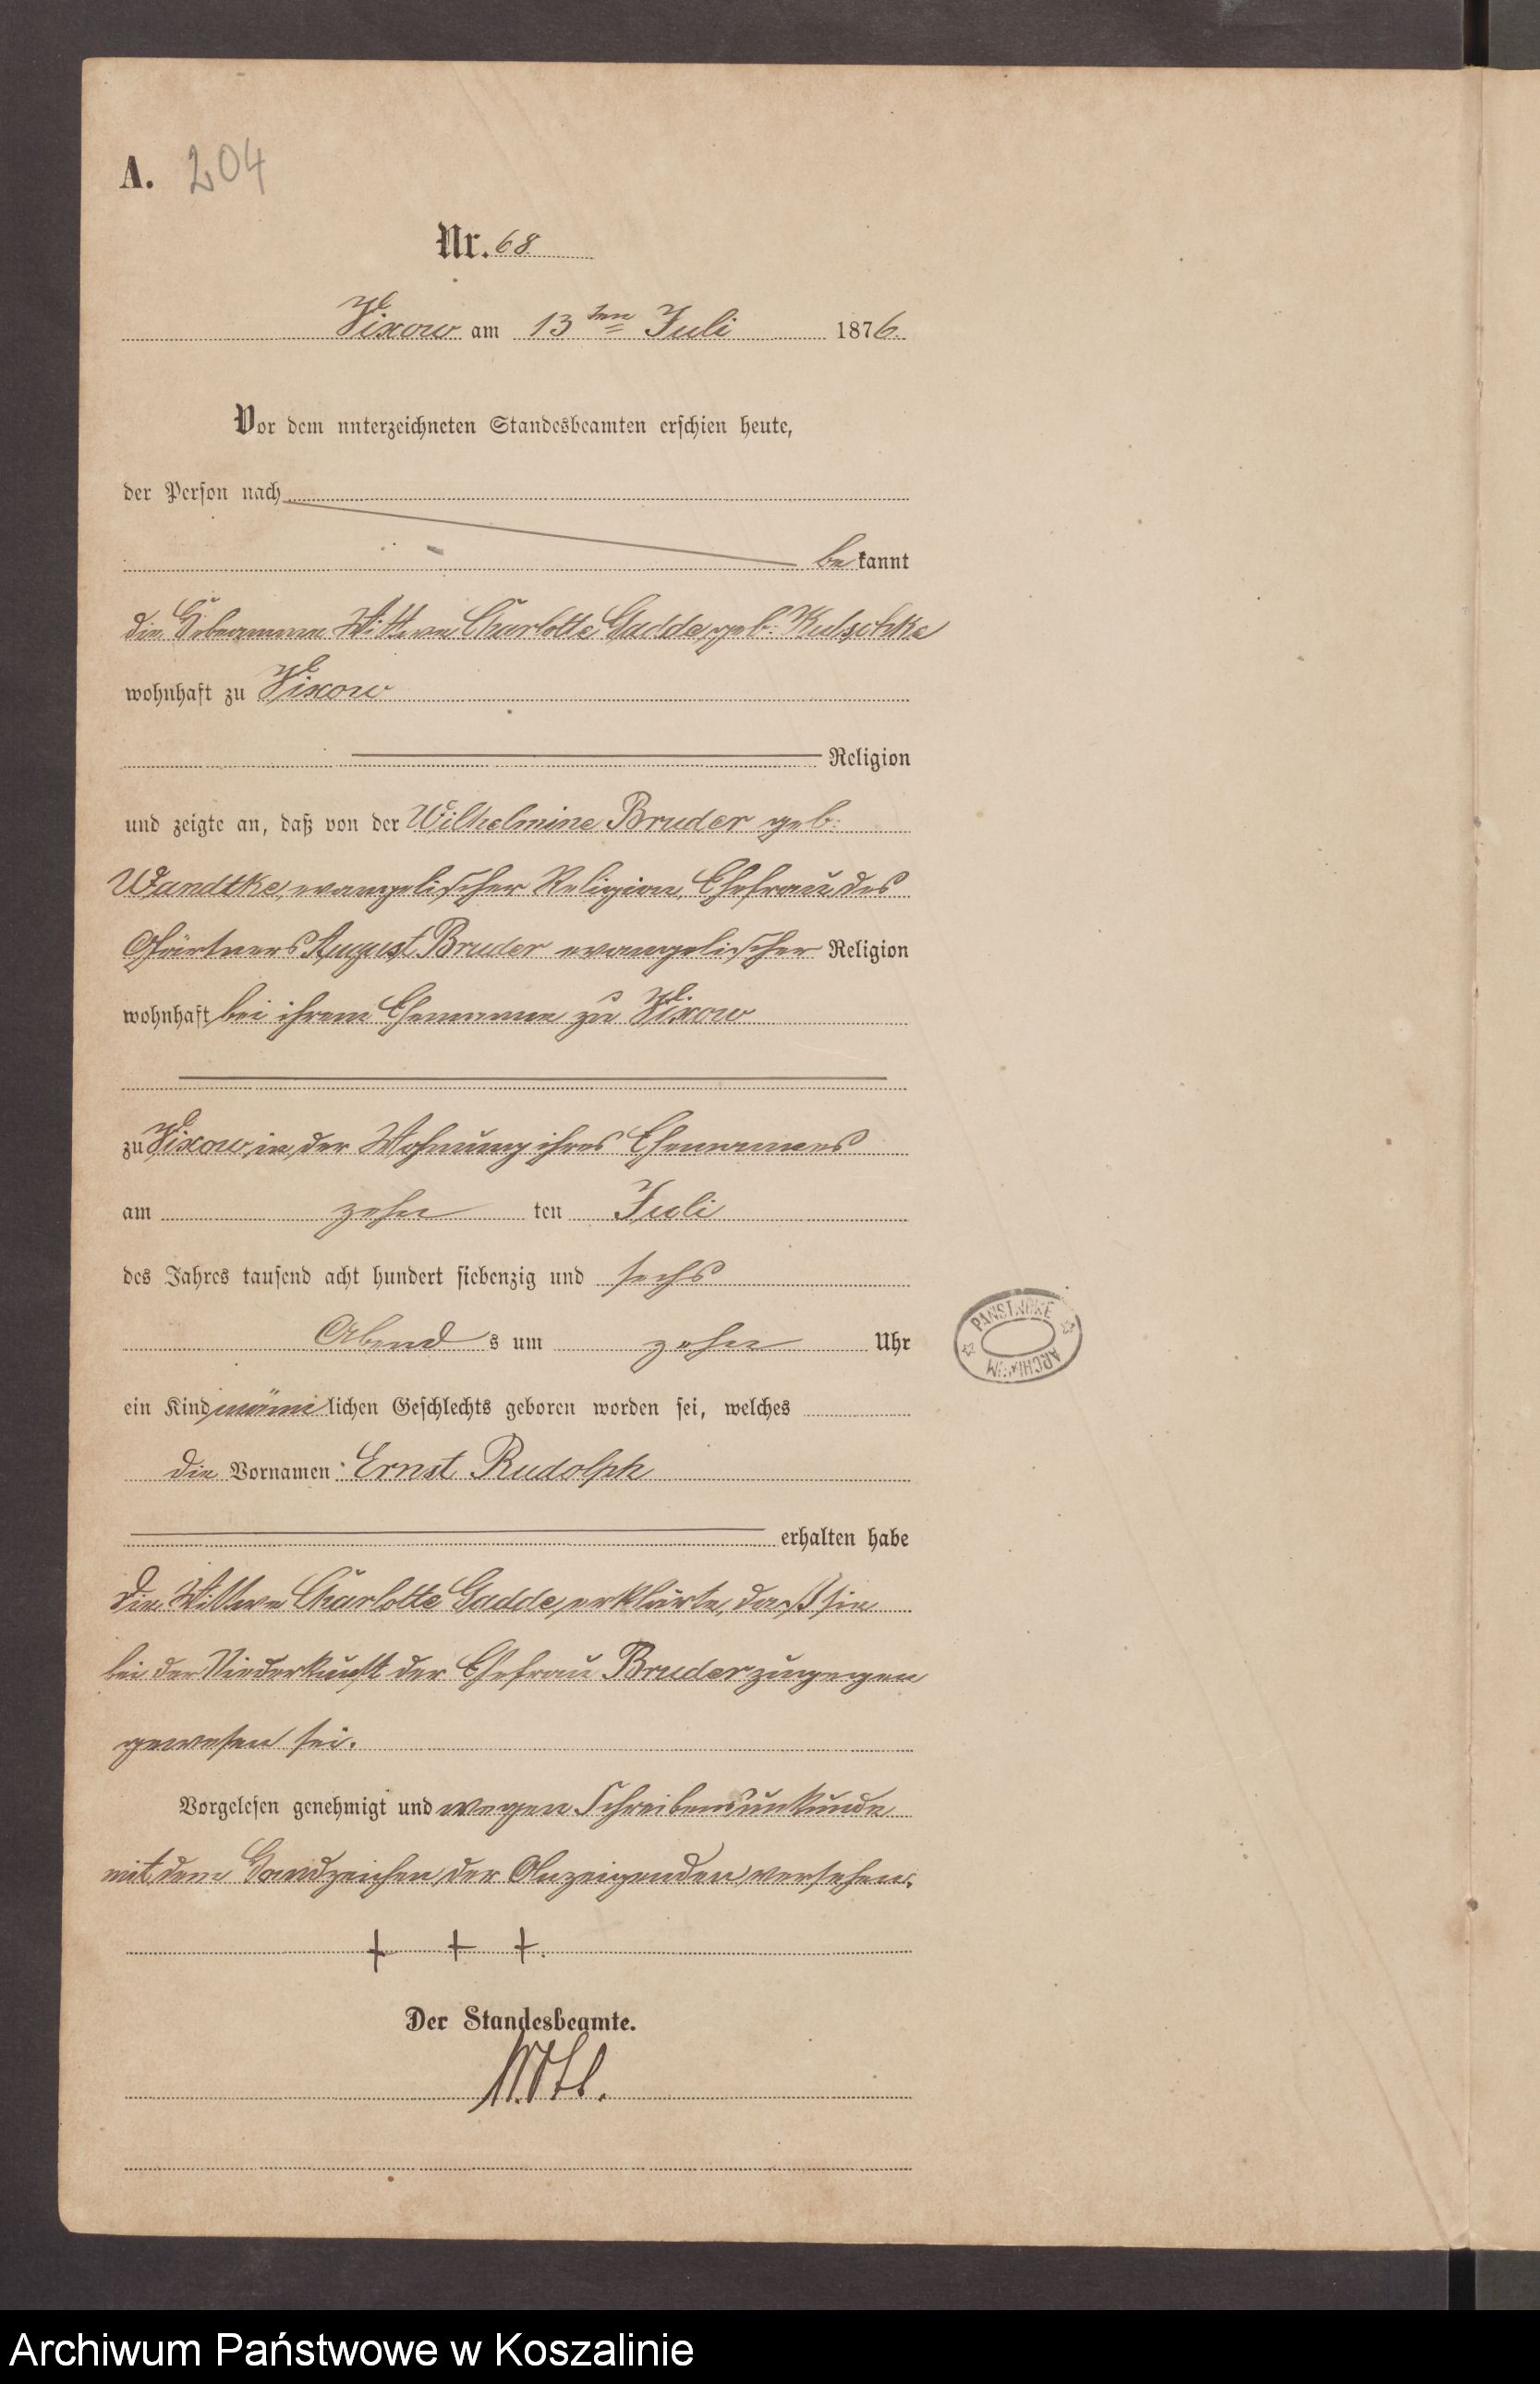 A. 204
Nr. 68
Vixow am 13ten Juli 1876.
Vor dem unterzeichneten Standesbeamten erschien heute,
der Person nach
bekannt
die Hebamme Wittwe Charlotte Gadde, geb. Kutschke
wohnhaft zu Vixow
Religion
und zeigte an, daß von der Wilhelmine Bruder geb.
Wandtke, evangelischer Religion, Ehefrau des
Gärtners August Bruder evangelischer Religion
wohnhaft bei ihrem Ehemanne zu Vixow
zu Vixow in der Wohnung ihres Ehemannes
am zehn ten Juli
des Jahres tausend acht hundert siebenzig und sechs
Abend s um zehn Uhr
ein Kind männlichen Geschlechts geboren worden sei, welches
die Vornamen: Ernst Rudolph
erhalten habe
Die Wittwe Charlotte Gadde, erklärte, daß sie
bei der Niederkunft der Ehefrau Bruder zugegen
gewesen sei.
Vorgelesen genehmigt und wegen Schreibensunkunde
mit dem Handzeichen der Anzeigenden versehen.
+ + +.
Der Standesbeamte.
PAŃSTWOWE
ARCHIWUM
Archiwum Państwowe w Koszalinie